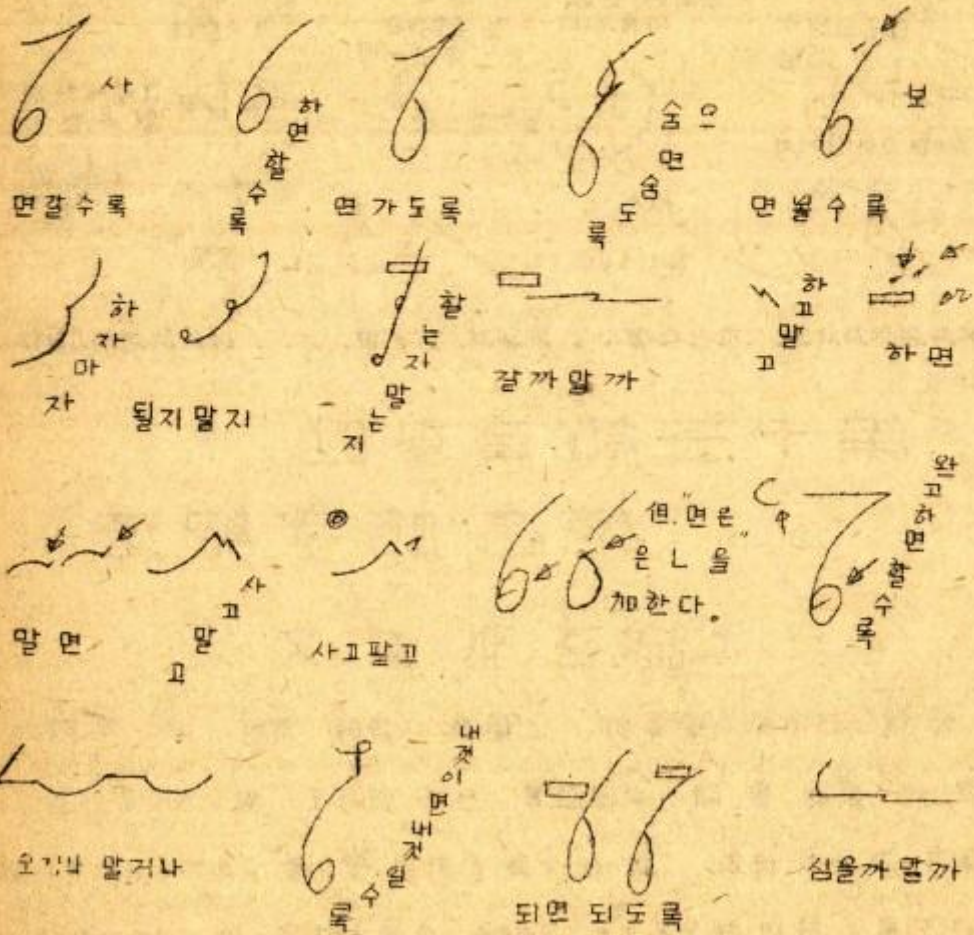 사
면갈수록
하면할수록
면가도록
숨으면숨도록
보
면볼수록
하자마자
될지말지
할는지말는지
갈까말까
하고말고
하면
말면
사고말고
사고팔고
但,"면은"
은ㄴ을
加한다.
완고하면할수록
오거나 말거나
내것이면내것일수록
되면 되도록
심을까 말까